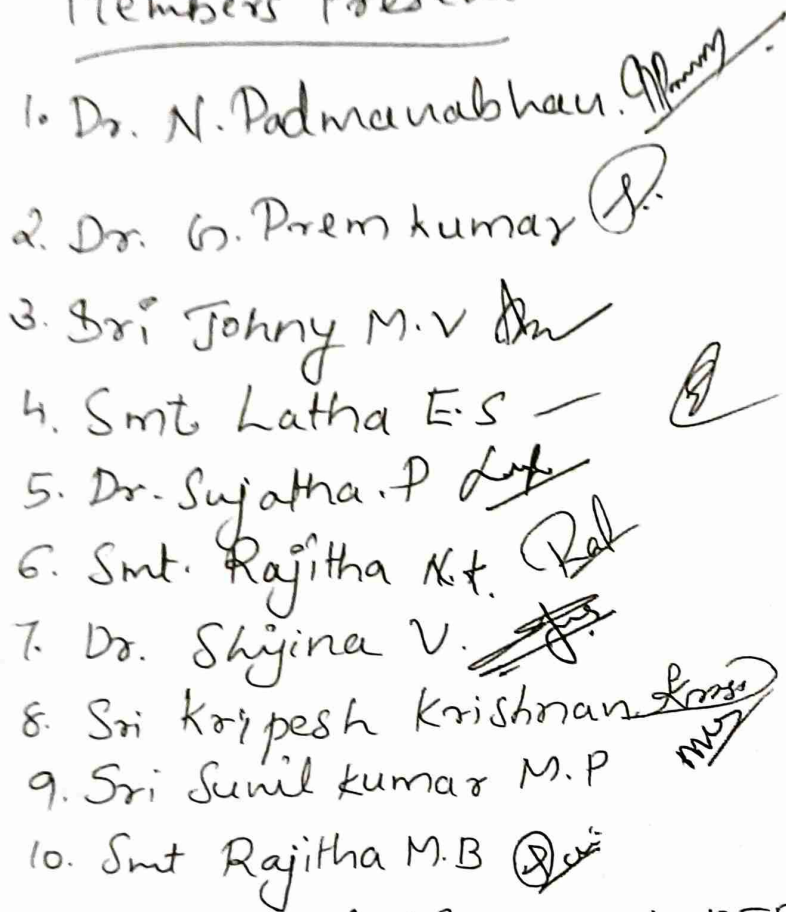 Members Present
1. Dr. N. Padmanabhan.
2. Dr. G. Prem kumar
3. Sri Johny M.V
4. Smt Latha E.S –
5. Dr. Sujatha. P
6. Smt. Rajitha K.t.
7. Dr. Shijina V.
8. Sri Kripesh Krishnan
9. Sri Sunil kumar M.P
10. Smt Rajitha M.B